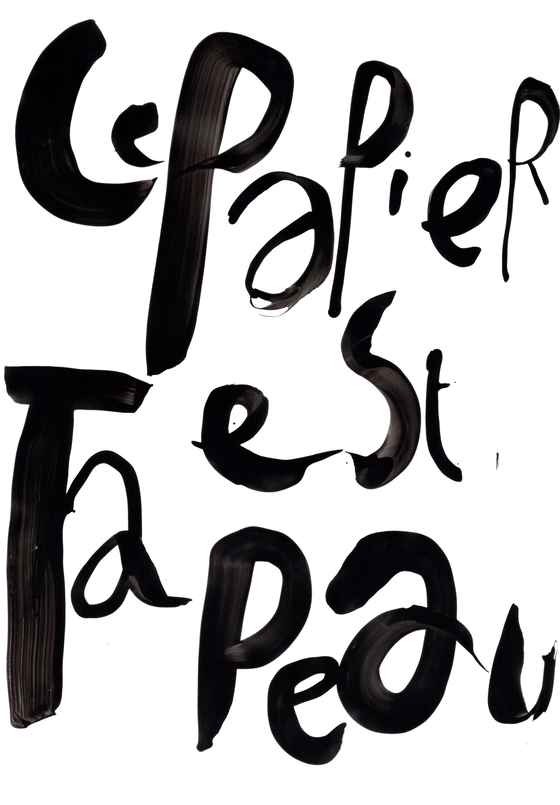 Ce PaPieR
eSt
Ta Peau